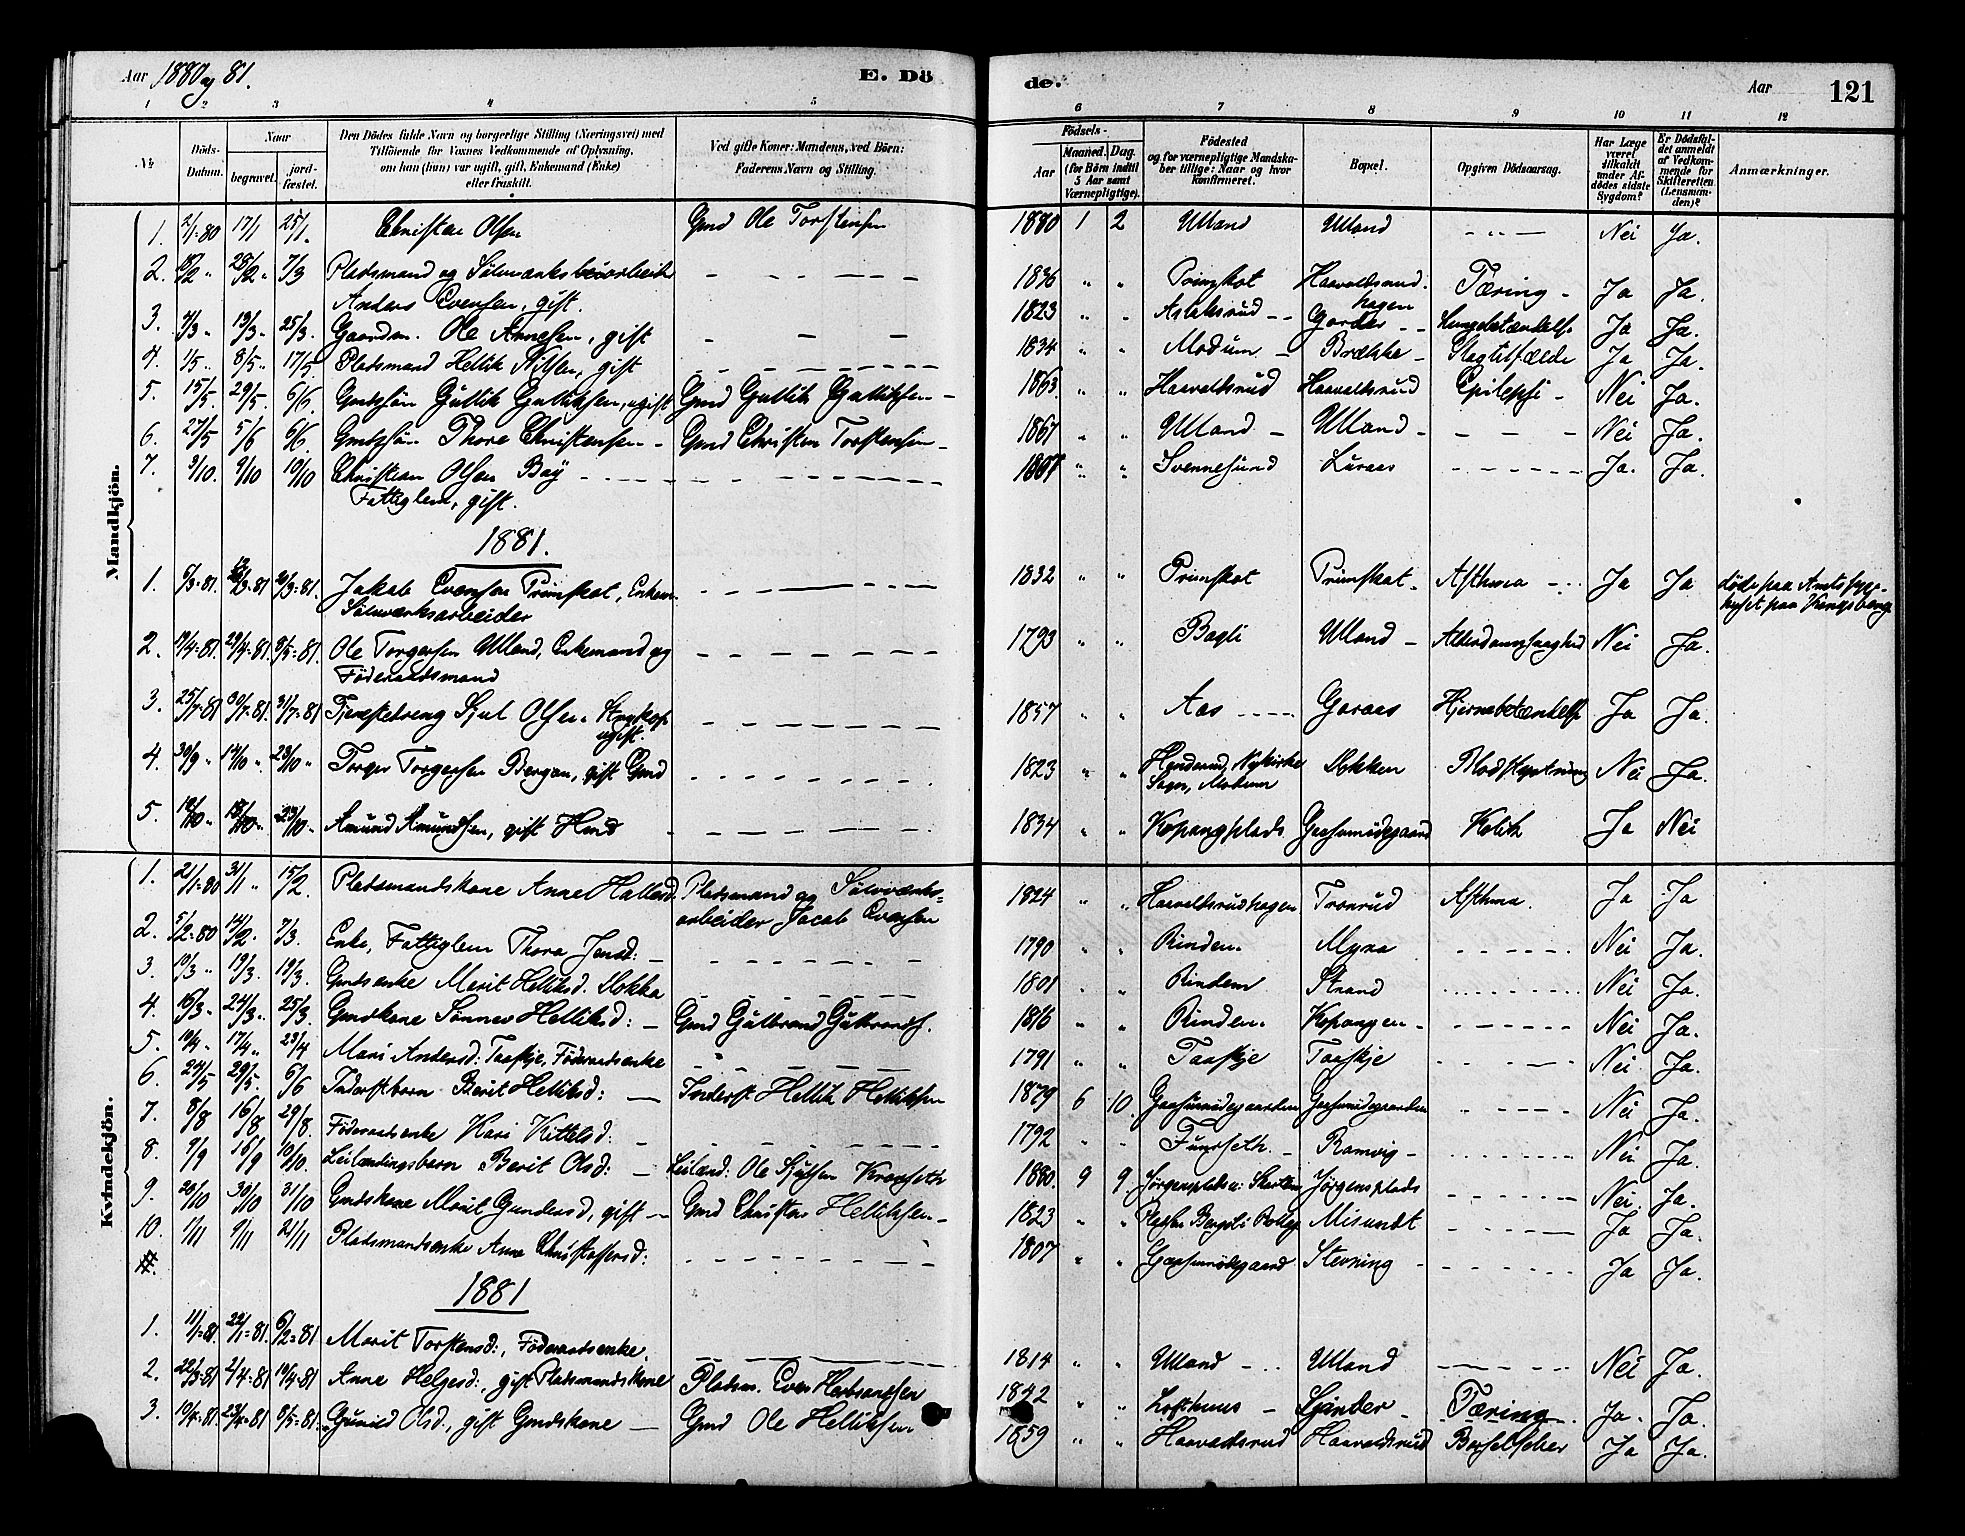 Aar 1880 og 81.
E. Dö
de.
Aar
121
1 2 3 4 5 6 7 8 9 10 11 12
No
Döds-Datum.
Naar
begravet.
jord-fæstet.
Den Dödes fulde Navn og borgerlige Stilling (Næringsvei) med
Tilföiende for Voxnes Vedkommende af Oplysning,
om han (hun) var ugift, gift, Enkemand (Enke)
eller fraskilt.
Ved gifte Koner: Mandens, ved Börn:
Faderens Navn og Stilling.
Födsels-
Aar
Maaned. Dag.
(for Börn indtil
5 Aar samt
Værnepligtige).
Födested
og for værnepligtige Mandska-
ber tillige: Naar og hvor
konfirmeret.
Bopæl.
Opgiven Dödsaarsag.
Har Læge
været
tilkaldt
under Af-
dödes sidste
Sygdom?
Er Dödsfal-
det anmeldt
af Vedkom-
mende for
Skifteretten
(Lensman-
den)?
Anmærkninger.
Mandkjön.
1. 2/1-80 17/1 25/1. Christen Olsen Gmd Ole Torstensen 1880 1 2 Ulland Ulland - " - Nei Ja.
2. 28/2 " 7/3 Pladsmand og Sölvværksarbeider - - - 1836 " " Primskot Haavaldsrud- Tæring - Ja Ja.
Anders Evensen, gift. hagen
3. 7/3 " 13/3 " 25/3. Gaardm. Ole Arnesen, gift - - - 1823 " " Aslaksrud - - Gorder - - Lungebetændelse Ja Ja.
4. 1/5 " 8/5 " 17/5 Pladsmand Hellik Nilsen, gift - - - 1834 " " Modum - Brække - Slagtilfælde Ja Ja.
5. 15/5 29/5. 6/6. Gmdssön Gullik Gulliksen, ugift Gmd Gullik Gulliksen - 1863 " " Haavaldsrud Haavaldsrud Epilepsi - Nei Ja.
6. 27/5 5/6 6/6. Gmdssön Thore Christensen - Gmd Christen Torstensen - 1867 " " Ulland - Ulland - - - - Nei Ja.
7. 3/10. 9/10 10/10 Christian Olsen Bay - - - 1807 " " Svennesund Luraas - - - Ja. Ja.
Fattiglem, gift.
1881.
1. 6/3-81 /3-81 20/3-81. Jakob Evensen Primskot, Enkem. - - - 1832 " " Primskot Primskot - Asthma - Ja Ja döde paa Amtssyge-
Sölvværksarbeider huset paa Kongsberg
2. 19/4-81. 29/4-81. 8/5-81. Ole Torgersen Ulland, Enkemand og - - - 1793 " " Bagli Ulland - Alderdomssvaghed Nei Ja.
Föderaadsmand
3. 25/7-81 30/7-81. 31/7-81 Tjenestedreng Sjul Olsen - - - 1857 " " Aas - - - Goraas Hjernebetændelse Ja Ja.
ugift.
4. 30/9 " 14/10 ". 23/10 " Torger Torgersen Bergan, gift Gmd - - - 1823 " " Nykirke Dokken Blodstyrtning Nei Ja.
Sogn, Modum
5. 10/10 " 18/10 ". 23/10 " Amund Amundsen, gift Hmd - - - 1834 " " Kopangplads Gaasumödegaard Kolik Ja Nei
Kvindekjön.
1. 21/1-80 31/1 " 15/2. Pladsmandskone Anne Halvord. Pladsmand og Sölvværks- 1824 " " Haavaldsrudhagen Tronrud Asthma. Ja Ja
arbeider Jacob Evensen
2. 5/2-80 14/2. 7/3. Enke, Fattiglem Thora Jensd: - - - 1790 " " Rinden. Myra - - - Nei Ja.
3. 10/3 " 19/3. 19/3. Gmdsenke Marit Helliksd. Dokka - - - 1801 " " Rinden Strand - - - Nei Ja.
4. 16/3 " 24/3 " 25/3. Gmdskone Sönnev Helliksd: - Gmd Gulbrand Gulbrands. 1816 " " Rinden. Kopangen - - - - Nei Ja.
5. 10/4 " 17/4 " 23/4 Mari Andersd: Taaskje, Föderaadsenke - - - 1791 " " Taaskje Taaskje - - - Nei Ja.
6. 24/5 29/5. 6/6 Inderstbarn Berit Helliksd: - Inderst Hellik Helliksen 1879 6 10. Gaasumödegaarden Gaasumödegaarden - - - Nei Ja.
7. 8/8 16/8 29/8. Föderaadsenke Kari Kittelsd: - - - 1792 " " Funseth. - Ramvig - - - - Nei Ja.
8. 9/9 16/9 10/10. Leilændingsbarn Berit Olsd: - Leilænd: Ole Sjulsen Kragseth 1880. 9 9. Jörgensplads Jörgensplads - - - Nei. Ja.
9. 20/10 30/10 31/10 Gmdskone Marit Gundersd, gift - Gmd Christen Helliksen - 1823 " " Misundt - - - Ja Ja.
10. 1/11 9/11 21/11 Pladsmandsenke Anne Christoffersd: - - - 1807 " " Gaasumödegaard Stevning - - - - Ja Ja.
1881
1. 11/1-81. 22/1-81. 6/2-81 Marit Torstensd:, Föderaadsenke. - - - 1814 " " Ulland - - - Ulland - - - Nei Ja.
2. 22/3-81 2/4-81 10/4-81 Anne Helgesd:, gift Pladsmandskone Pladsm. Even Halvorsen 1842 " " Lofthuus - Ljander - Tæring - - Ja. Ja.
3. 10/4-81. 23/4-81 8/5-81. Gunild Olsd., gift Gmdskone - Gmd Ole Helliksen 1859 " " Haavaldsrud Haavaldsrud Barselfeber Ja Ja.